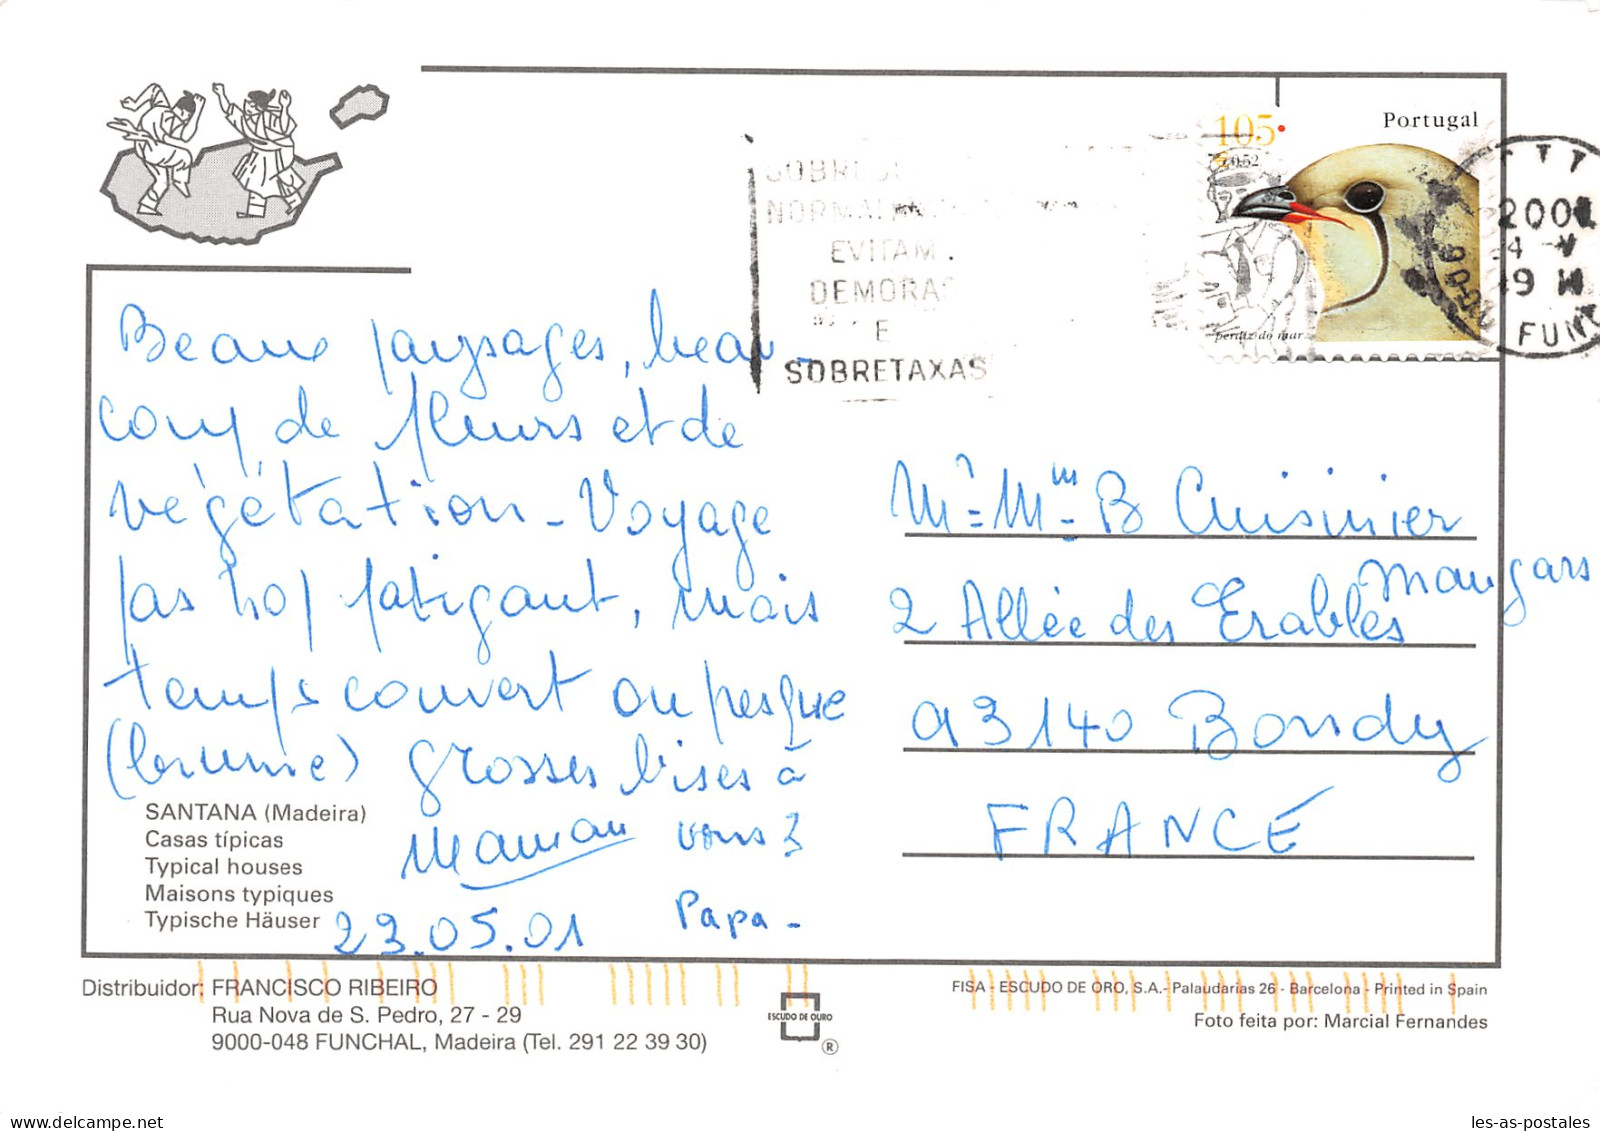 Beaux paysages, beau-
coup de fleurs et de
végétation - Voyage
pas trop fatigant, mais
temps couvert ou presque
(brume) grosses bises à
vous 3
Maman
Papa -
23.05.01
SANTANA (Madeira)
Casas típicas
Typical houses
Maisons typiques
Typische Häuser
Distribuidor: FRANCISCO RIBEIRO
Rua Nova de S. Pedro, 27 - 29
9000-048 FUNCHAL, Madeira (Tel. 291 22 39 30)
ESCUDO DE OURO
®
EVITAM
DEMORAS
E
SOBRETAXAS
105
0.52
Portugal
perdiz do mar
2001
FUN
Mr. Mme B Cuisinier
Maugars
2 Allée des Erables
93140 Bondy
FRANCE
FISA - ESCUDO DE ORO, S.A.- Palaudarias 26 - Barcelona - Printed in Spain
Foto feita por: Marcial Fernandes
les-as-postales